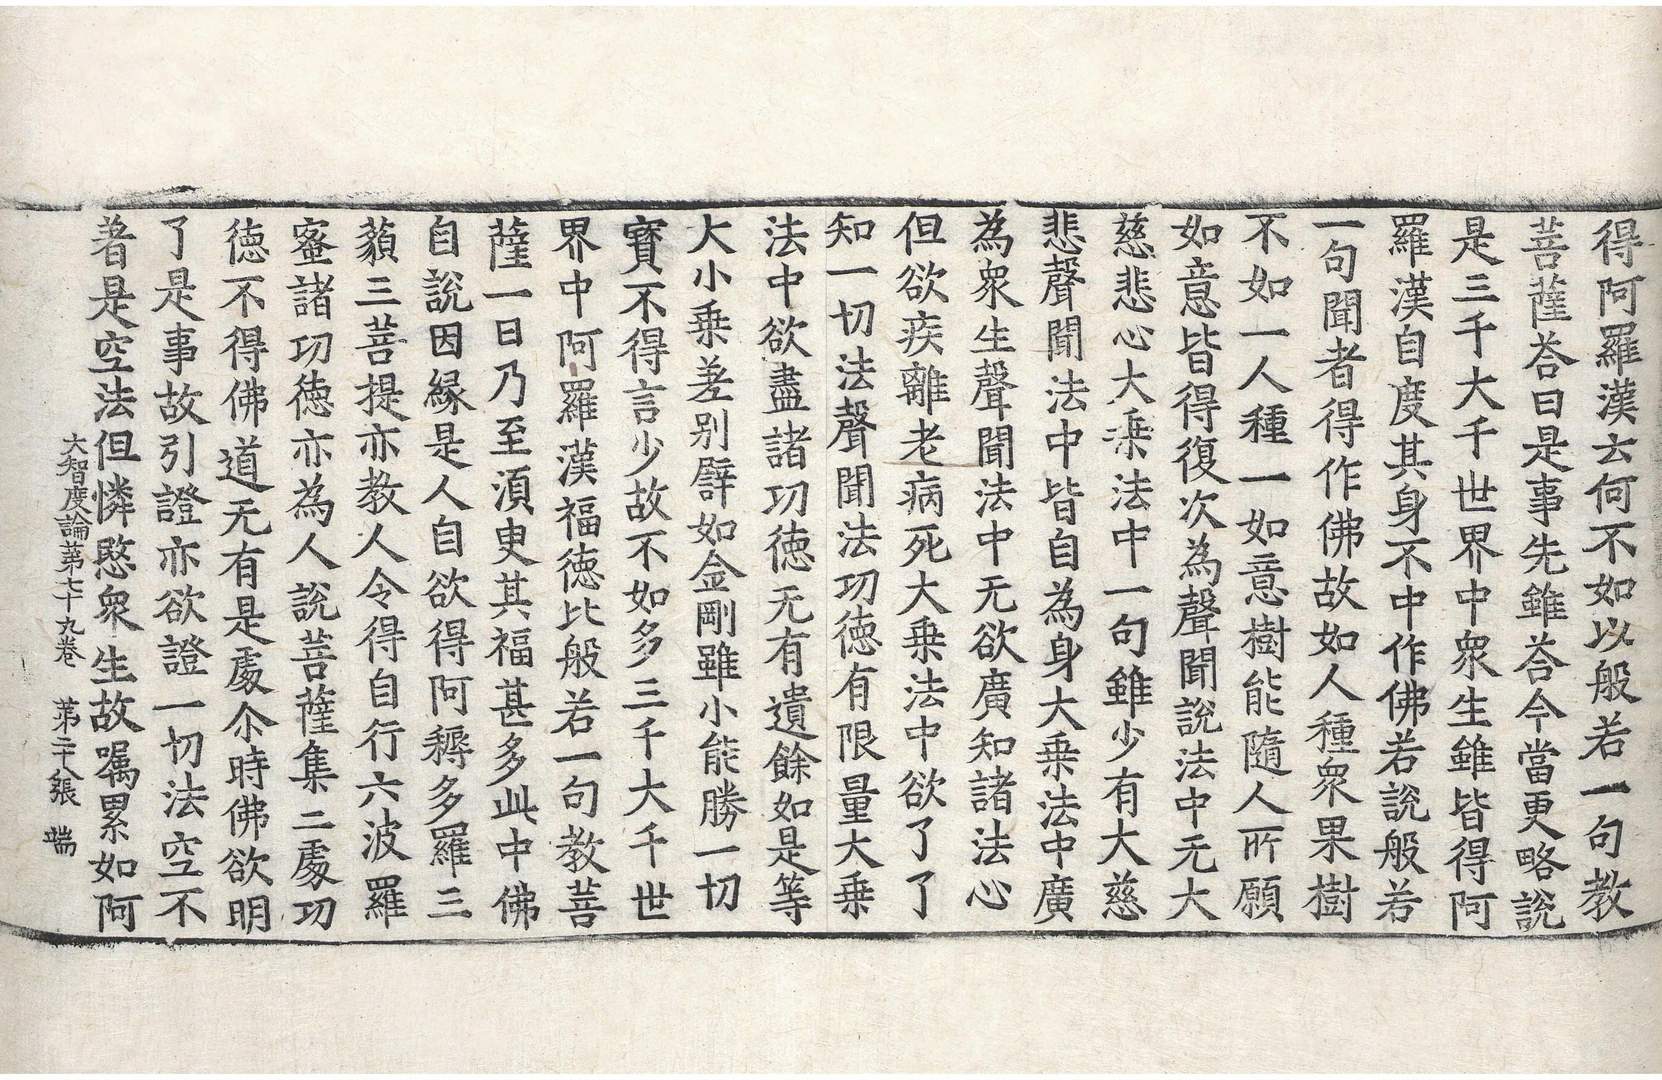 得阿羅漢云何不如以般若一句教
菩薩荅曰是事先雖荅今當更略說
是三千大千世界中衆生雖皆得阿
羅漢自度其身不中作佛若說般若
一句聞者得作佛故如人種衆果樹
不如一人種一如意樹能隨人所願
如意皆得復次為聲聞說法中无大
慈悲心大乗法中一句雖少有大慈
悲聲聞法中皆自為身大乗法中廣
為衆生聲聞法中无欲廣知諸法心
但欲疾離老病死大乗法中欲了了
知一切法聲聞法功徳有限量大乗
法中欲盡諸功徳无有遺餘如是等
大小乗差别譬如金剛雖小能勝一切
寳不得言少故不如多三千大千世
界中阿羅漢福徳比般若一句教菩
薩一日乃至湏臾其福甚多此中佛
自說因縁是人自欲得阿耨多羅三
藐三菩提亦教人令得自行六波羅
蜜諸功徳亦為人說菩薩集二處功
徳不得佛道无有是處尒時佛欲明
了是事故引證亦欲證一切法空不
著是空法但憐愍衆生故嘱累如阿
大智度論苐七十九卷 苐二十八張 端